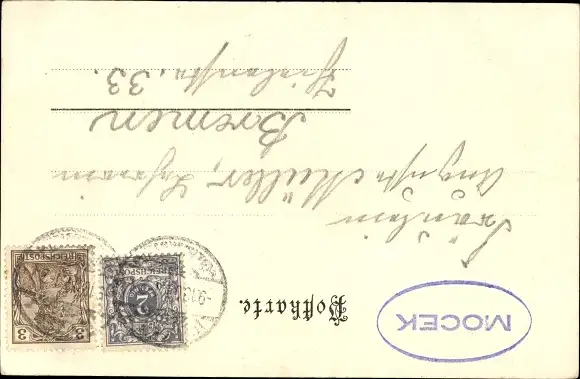 MOCEK
Postkarte.
Fräulein
Auguste Müller, Lehrerin
Bremen
33.
REICHSPOST
2
REICHSPOST
3
3